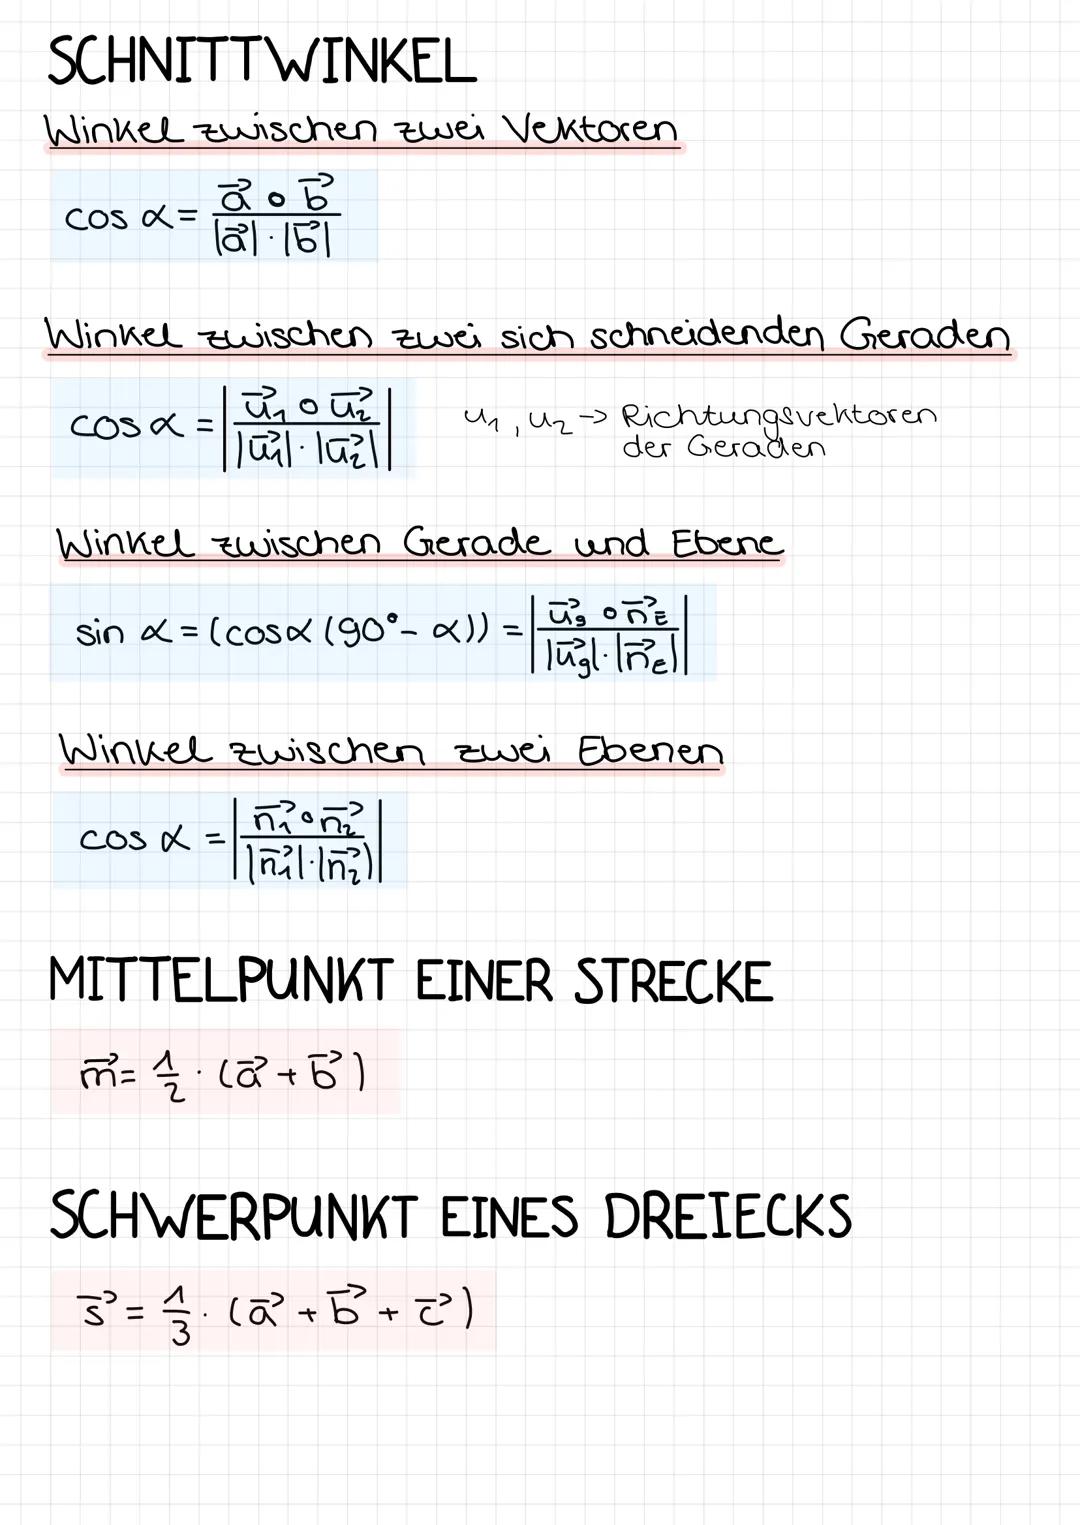 SCHNITTWINKEL
Winkel zwischen zwei Vektoren
cos α = (a⃗ ∘ b⃗) / (|a⃗| · |b⃗|)
Winkel zwischen zwei sich schneidenden Geraden
cos α = |(u⃗₁ ∘ u⃗₂) / (|u⃗₁| · |u⃗₂|)| u₁, u₂ → Richtungsvektoren
der Geraden
Winkel zwischen Gerade und Ebene
sin α = (cosα (90° - α)) = |(u⃗g ∘ n⃗E) / (|u⃗g| · |n⃗E|)|
Winkel zwischen zwei Ebenen
cos α = |(n⃗₁ ∘ n⃗₂) / (|n⃗₁| · |n⃗₂|)|
MITTELPUNKT EINER STRECKE
m⃗ = 1/2 · (a⃗ + b⃗)
SCHWERPUNKT EINES DREIECKS
s⃗ = 1/3 · (a⃗ + b⃗ + c⃗)